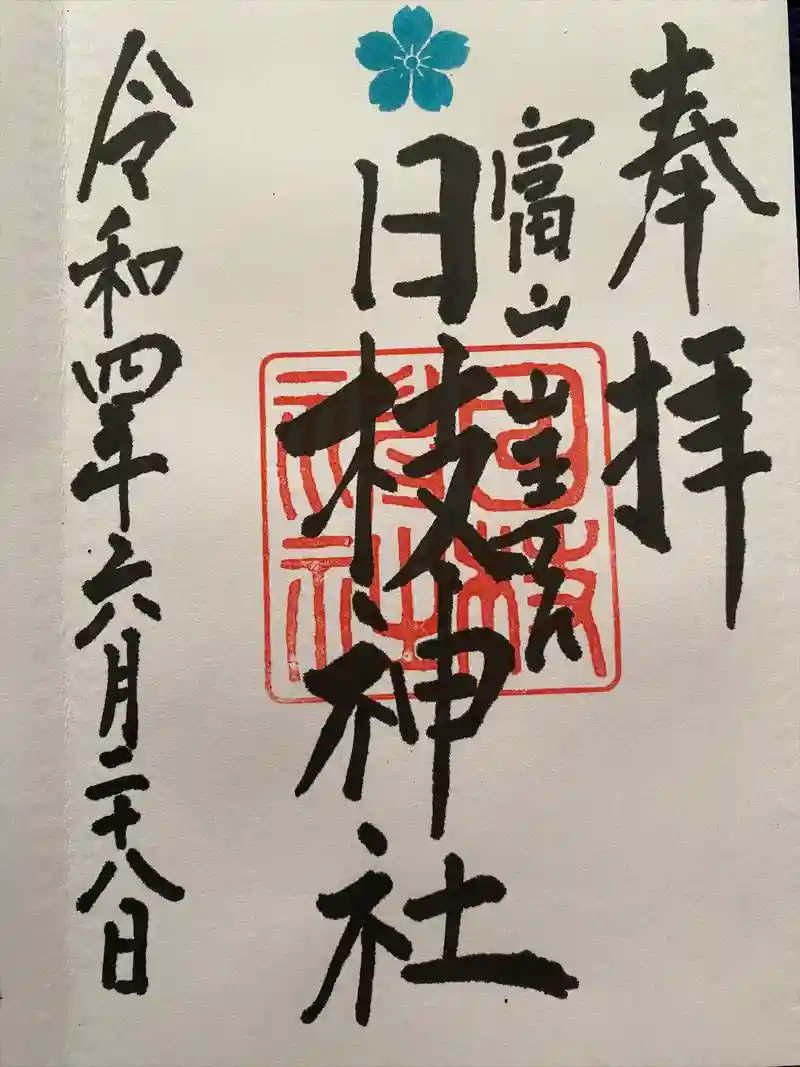 奉拝
富山山王宮
日枝神社
日枝神社
令和四年六月二十八日